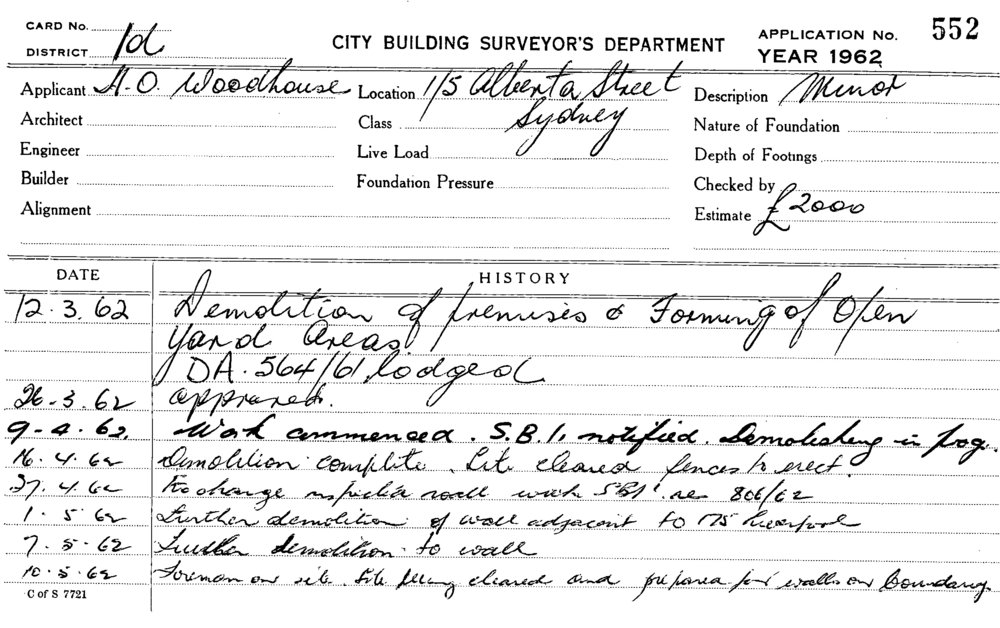 CARD No.
DISTRICT 1d
CITY BUILDING SURVEYOR'S DEPARTMENT
APPLICATION No. 552
YEAR 1962
Applicant H.O. Woodhouse
Location 1/5 Alberta Street
Sydney
Description Minor
Architect
Class
Nature of Foundation
Engineer
Live Load
Depth of Footings
Builder
Foundation Pressure
Checked by
Alignment
Estimate £2000
DATE HISTORY
12.3.62 Demolition of premises & Forming of Open
Yard Areas.
DA.564/61 lodged
26-3.62 approved.
9-4-62. Work commenced. S.B.I. notified. Demolishing in prog.
16.4.62 Demolition complete. Site cleared fences to erect.
27.4.62 inspected wall with SBI re 806/62
1.5.62 Further demolition of wall adjacent to 175 Liverpool
7.5.62 Further demolition to wall
10.5.62 Foreman on site. Site being cleared and prepared for walls on boundary.
C of S 7721